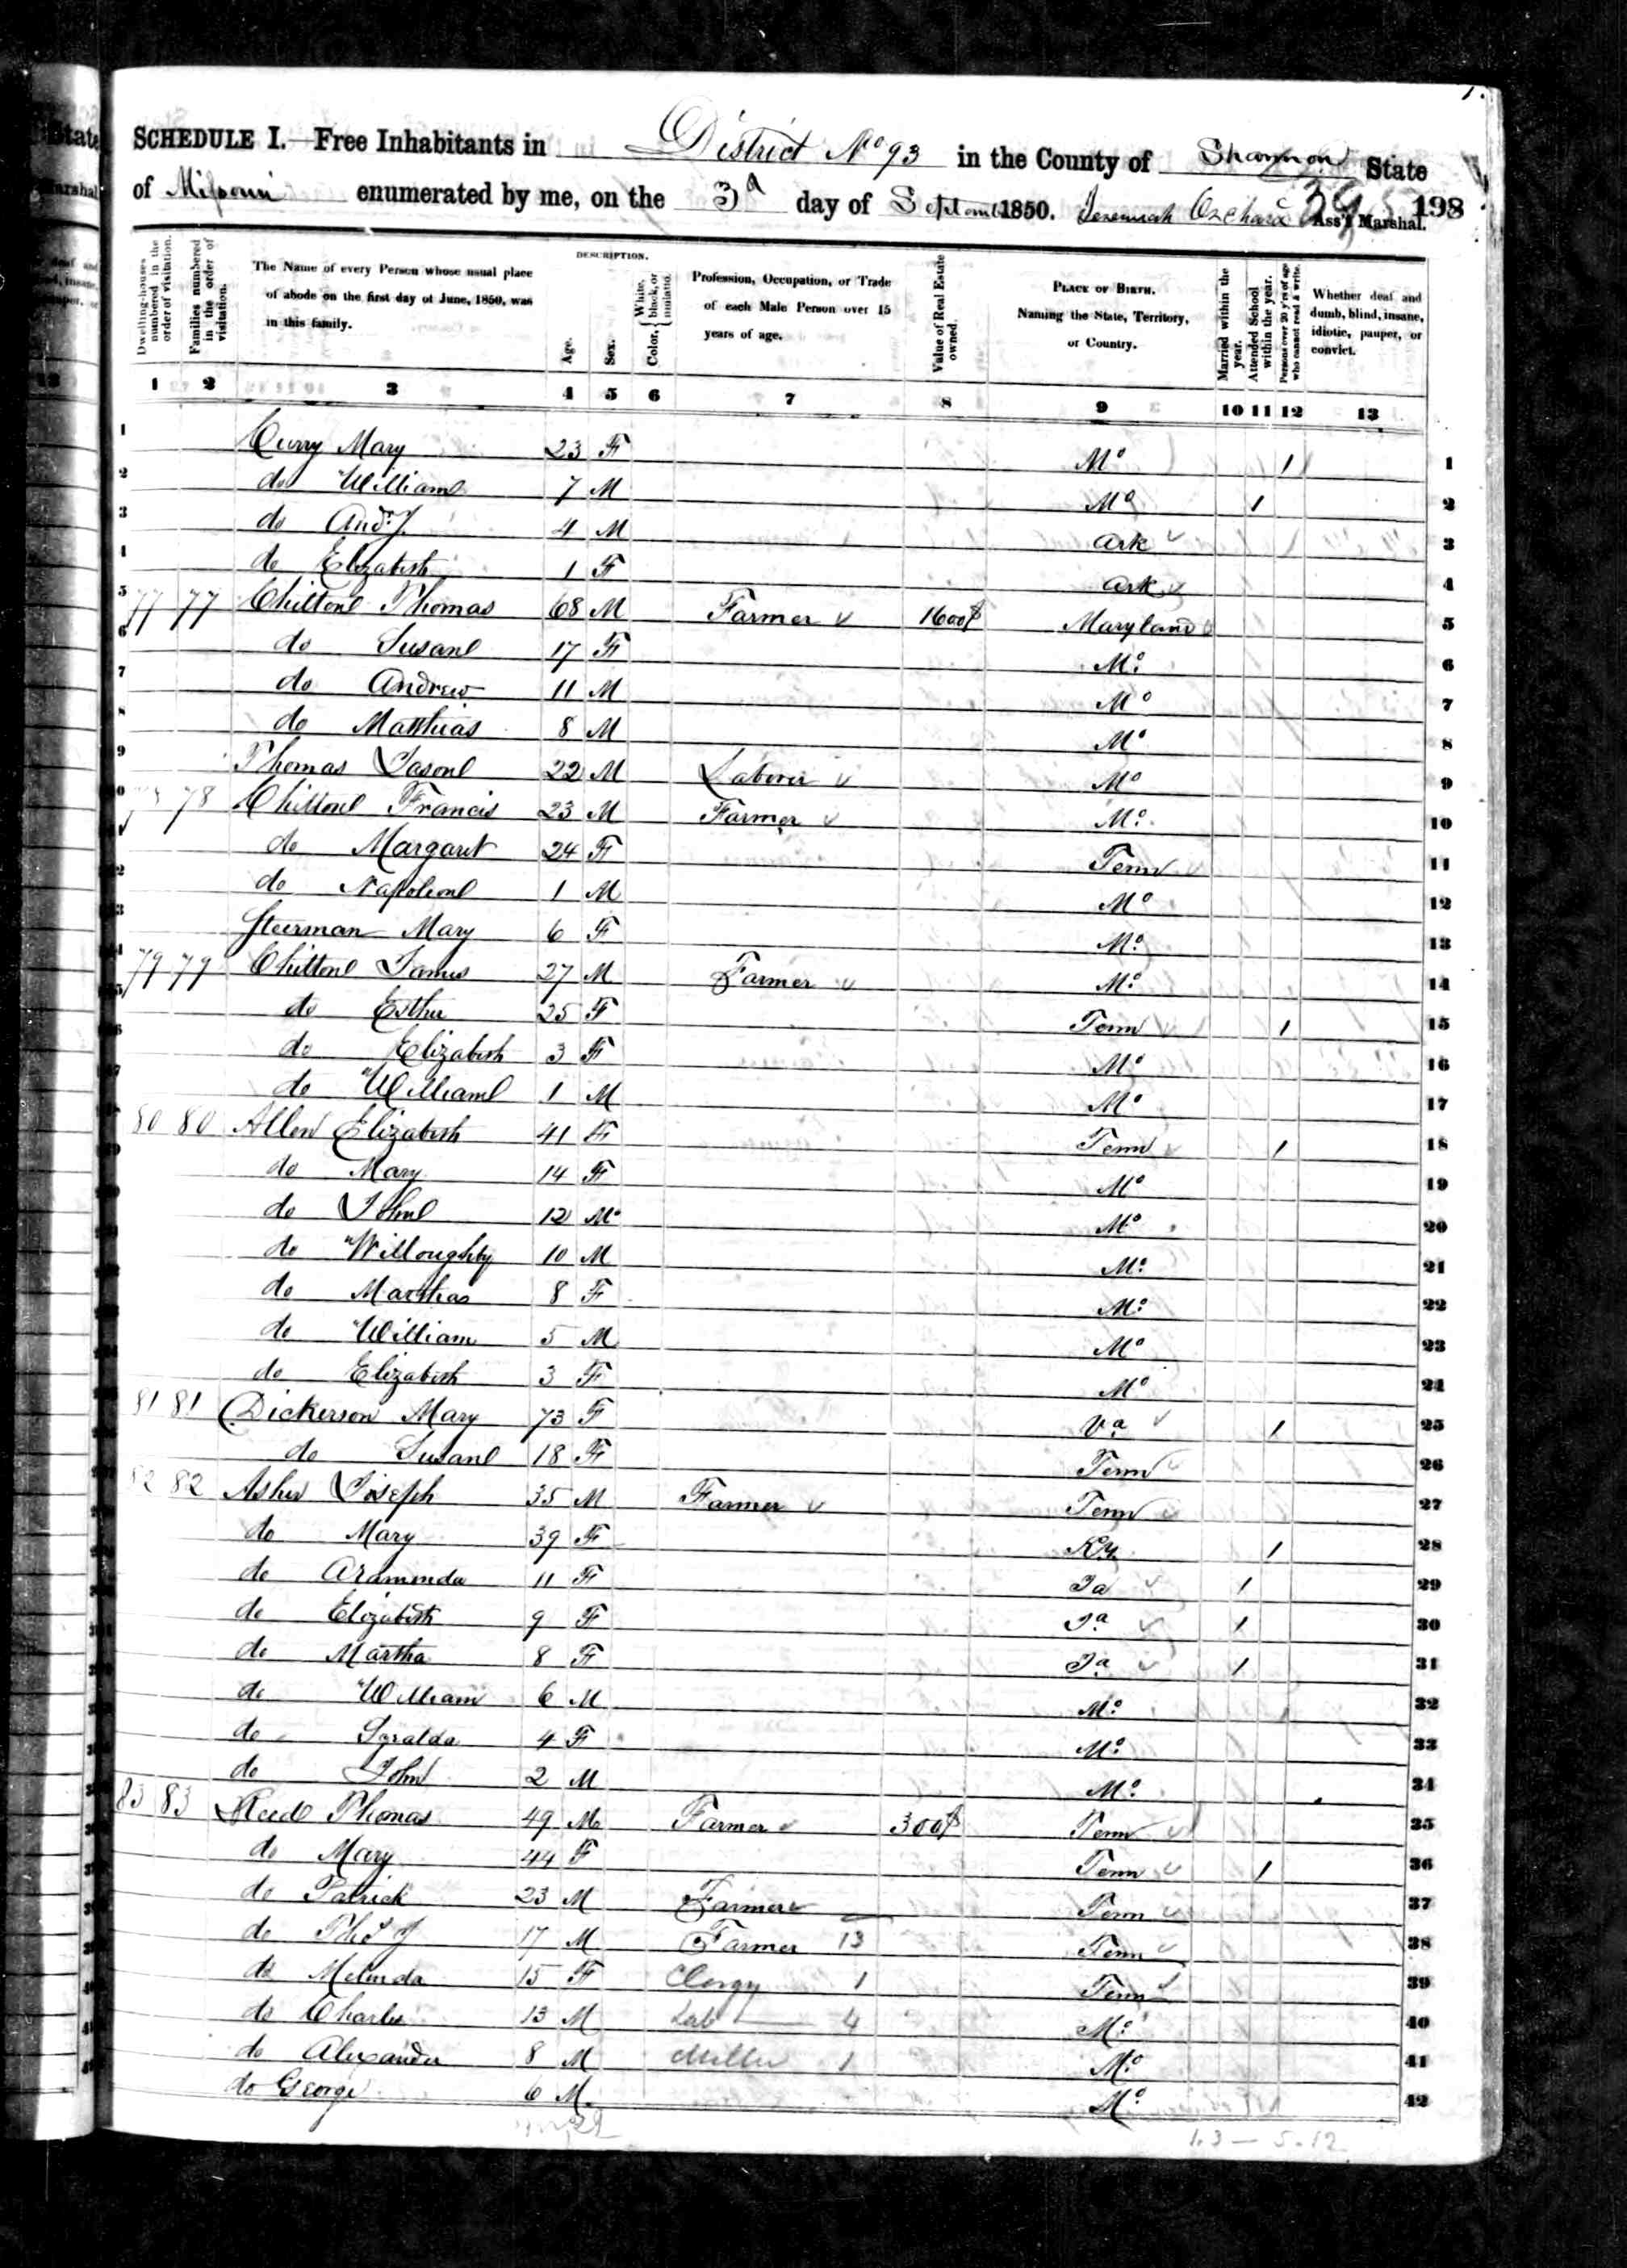 1.
SCHEDULE I.—Free Inhabitants in District No 93 in the County of Shannon State
of Missouri enumerated by me, on the 3d day of Septemb 1850. Jeremiah Orchard Ass't Marshal. 198
DESCRIPTION.
Dwelling-houses numbered in the order of visitation.
Families numbered in the order of visitation.
The Name of every Person whose usual place of abode on the first day of June, 1850, was in this family.
Age.
Sex.
Color, { White, black, or mulatto.
Profession, Occupation, or Trade of each Male Person over 15 years of age.
Value of Real Estate owned.
PLACE OF BIRTH. Naming the State, Territory, or Country.
Married within the year.
Attended School within the year.
Persons over 20 y'rs of age who cannot read & write.
Whether deaf and dumb, blind, insane, idiotic, pauper, or convict.
1 2 3 4 5 6 7 8 9 10 11 12 13
1 Curry Mary 23 F Mo 1 1
2 do William 7 M Mo 1 2
3 do And. J. 4 M Ark 3
4 do Elizabeth 1 F Ark 4
5 77 77 Chilton Thomas 68 M Farmer 1600$ Maryland 5
6 do Susan 17 F Mo 6
7 do Andrew 11 M Mo 7
8 do Matthias 8 M Mo 8
9 Thomas Jason 22 M Laborer Mo 9
78 78 Chilton Francis 23 M Farmer Mo 10
do Margaret 24 F Tenn 11
do Napoleon 1 M Mo 12
Steerman Mary 6 F Mo 13
79 79 Chilton James 27 M Farmer Mo 14
do Esther 25 F Tenn 1 15
do Elizabeth 3 F Mo 16
do William 1 M Mo 17
80 80 Allen Elizabeth 41 F Tenn 1 18
do Mary 14 F Mo 19
do John 12 M Mo 20
do Willoughby 10 M Mo 21
do Martha 8 F Mo 22
do William 5 M Mo 23
do Elizabeth 3 F Mo 24
81 81 Dickerson Mary 73 F Va 1 25
do Susan 18 F Tenn 26
82 82 Asher Joseph 35 M Farmer Tenn 27
do Mary 39 F Ky 1 28
do Araminda 11 F Ia 1 29
do Elizabeth 9 F Ia 1 30
do Martha 8 F Ia 1 31
do William 6 M Mo 32
do 4 F Mo 33
do John 2 M Mo 34
83 83 Reed Thomas 49 M Farmer 300$ Tenn 35
do Mary 44 F Tenn 1 36
do Patrick 23 M Farmer Tenn 37
do Tho J 17 M Farmer 13 Tenn 38
do Melinda 15 F Clergy 1 Tenn 39
do Charles 13 M Lab 4 Mo 40
do Alexander 8 M Miller 1 Mo 41
do George 6 M Mo 42
1.3 — 5.12